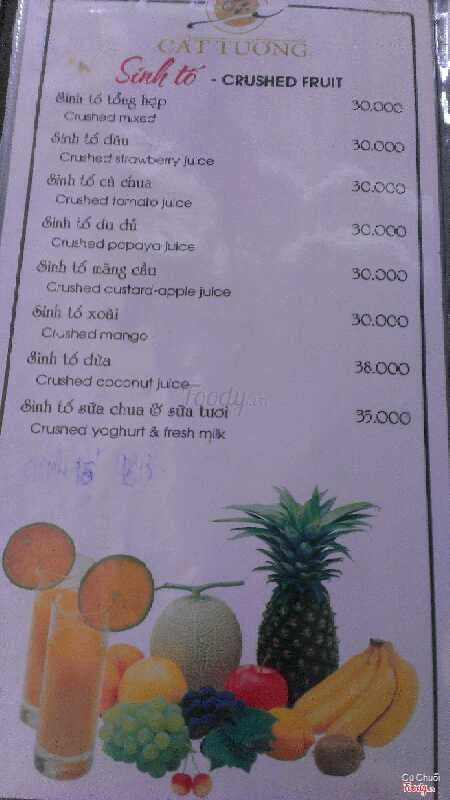 CÁT TƯỜNG
Sinh tố - CRUSHED FRUIT
Sinh tố tổng hợp 30.000
Crushed mixed
Sinh tố dâu 30.000
Crushed strawberry juice
Sinh tố cà chua 30.000
Crushed tomato juice
Sinh tố đu đủ 30.000
Crushed papaya juice
Sinh tố mãng cầu 30.000
Crushed custard-apple juice
Sinh tố xoài 30.000
Crushed mango
Sinh tố dừa 38.000
Crushed coconut juice
Foody.vn
Sinh tố sữa chua & sữa tươi 35.000
Crushed yoghurt & fresh milk
sinh tố
Cu Chuối
Foody.vn